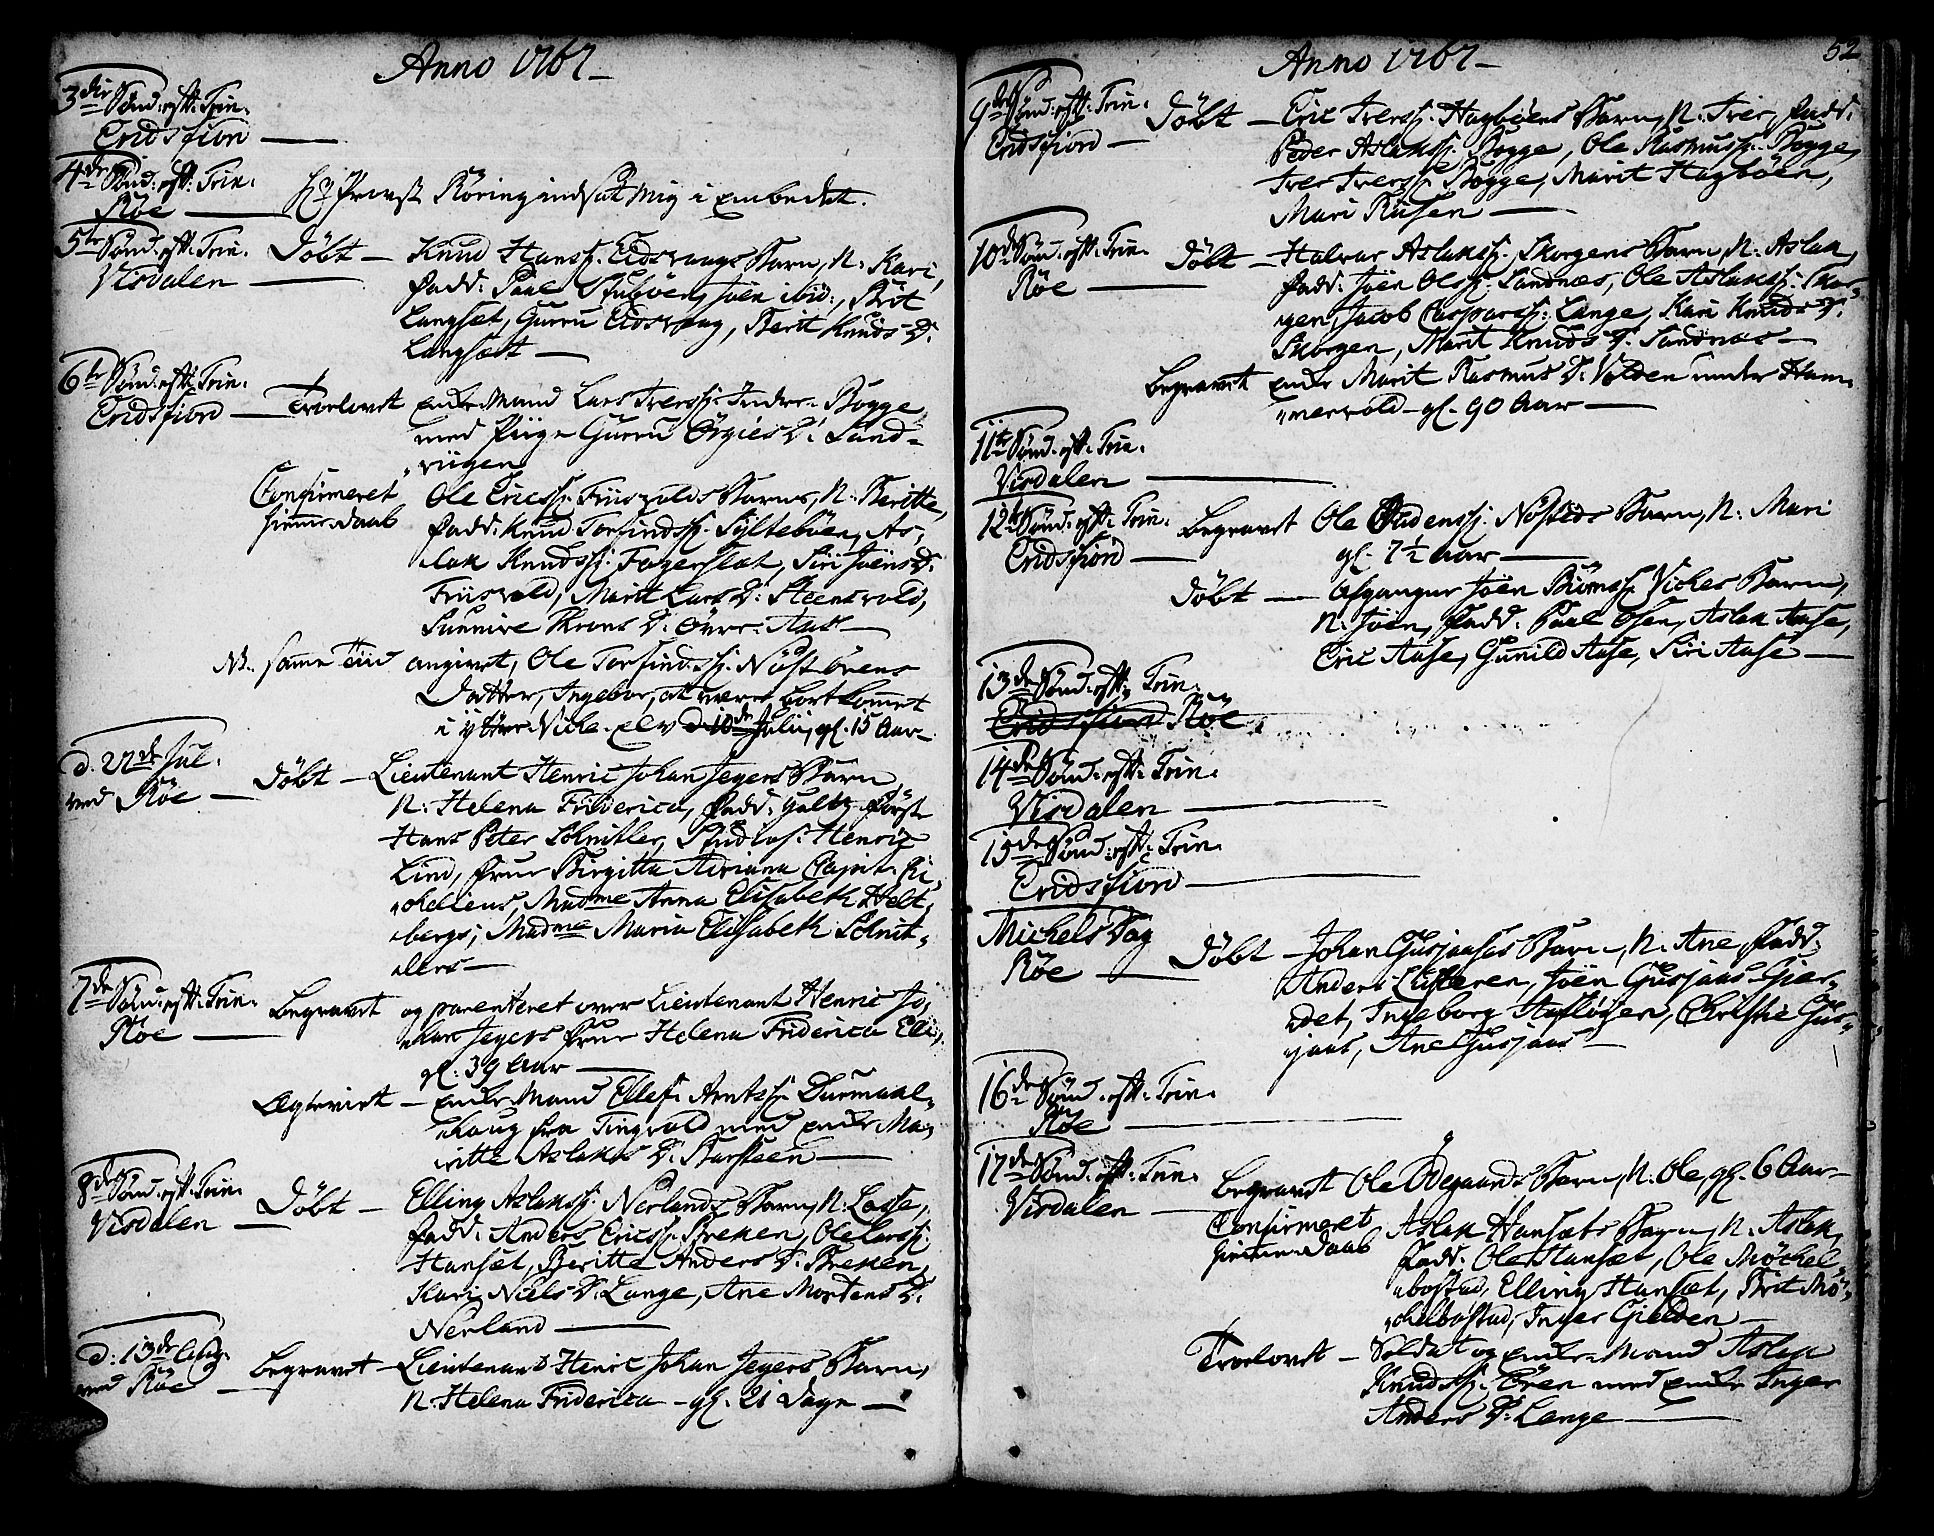 Anno 1767
3die Sønd: eft: Trin.
Eridsfiord
4de Sønd: eft: Trin.
Røe
Hr Provst Röring indsat mig i Embedet.
5te Sønd: eft: Trin.
Visdalen
Döbt - Knud Hanss: Eidsvaags Barn, N: Kari,
Fadd: Paul Joen ibid:, Brit
Langset, Guru Eidsvaag, Berit Knuds D:
Langset
6te Sønd: eft: Trin.
Eridsfiord
Troelovet Enke Mand Lars Iverss: Indre-Bogge
med Piige Guru Örgies D: Sand-
viigen
Confirmeret
hiemme-Daab
Ole Ericss: Friisvolds Barn, N: Beritte,
Fadd: Knud Torfindss: Sylteböen, As-
lak Knudss: Fagerslet, Siri Joens D:
Friisvold, Marit Lars D: Steensvold,
Sunnive D: Övre-Aas
NB. samme Tiid angivet, Ole Torfindss: Nöstböens
Datter, Ingebor, at være bortkommet
i ytter Vicke-elv d: 10de Julii, gl. 15 Aar
d. 27de Jul.
ved Røe
Döbt - Lieutenant Henric Johan Jegers Barn
N: Helena Friderica, Fadd:
Hans Peter Schnitler, Henric
Lind, Frue Birgitta Adriana Capit: Ri-
chelieus, Madme Anna Elisabeth Helt-
bergs, Madme Maria Elisabeth Schnit-
lers
7de Sønd: eft: Trin.
Røe
Begravet og parenteret over Lieutenant Henric Jo-
han Jegers Frue Helena Friderica
gl. 39 Aar
Ægteviet - Enke Mand Ellef Arntss: Durmaal-
haug fra Tingvold med Enke Ma-
ritte Aslaks D: Barsteen
8de Sønd: eft: Trin.
Visdalen
Döbt - Elling Aslakss: Nerlands Barn, N: Lasse,
Fadd: Anders Ericss: Breken, Ole Larss:
Hanset, Beritte Anders D: Breken,
Kari Niels D: Lange, Ane Mortens D:
Nerland
d: 13de Aug.
ved Røe
Begravet - Lieutenant Henric Johan Jegers Barn,
N: Helena Friderica - gl. 21 Dage
Anno 1767
52
9de Sønd: eft: Trin.
Eridsfiord
Döbt - Eric Iverss: Hagböens Barn, N: Iver, Fadd:
Peder Aslakss: Bogge, Ole Rasmuss: Bogge,
Iver Iverss: Bogge, Marit Hagböen,
Mari Rusen
10de Sønd: eft: Trin.
Røe
Döbt - Halvar Aslakss: Skorgens Barn, N: Aslak,
Fadd: Joen Olss: Sandnæs, Ole Aslakss: Skor-
gen, Jacob Casparss: Lange, Kari Knuds D:
Skorgen, Marit Knuds D: Sandnæs
Begravet Enke Marit Rasmus D: Volden under Ham-
mervold gl. 90 Aar
11te Sønd: eft: Trin.
Visdalen
12te Sønd: eft: Trin.
Eridsfiord
Begravet Ole Audenss: Nösteds Barn, N: Mari
gl. 7½ Aar
Döbt - Afgangne Joen Biörnss: Vickes Barn,
N: Joen, Fadd: Paul Osen, Aslak Aase,
Eric Aase, Gunild Aase, Siri Aase
13de Sønd: eft: Trin.
Eridsfiord Røe
14de Sønd: eft: Trin.
Visdalen
15de Sønd: eft: Trin.
Eridsfiord
Michels Dag
Røe
Döbt - Johan Gusjaases Barn, N: Ane Fadd:
Anders Joen Gusjaas Gier-
det, Ingeborg Christie Gus-
jaas, Ane Gusjaas
16de Sønd: eft: Trin.
Røe
17de Sønd: eft: Trin.
Visdalen
Begravet Ole Ödegaards Barn, N: Ole, gl. 6 Aar
Confirmeret
hiemme-Daab
Aslak Hansets Barn, N: Aslak,
Fadd: Ole Hanset, Ole Möckel-
bostad, Elling Hanset, Brit Mö-
ckelbostad, Inger Gielden
Troelovet - Soldat og Enke-Mand Aslak
Knudss: Ören med Enke Inger
Anders D: Lange